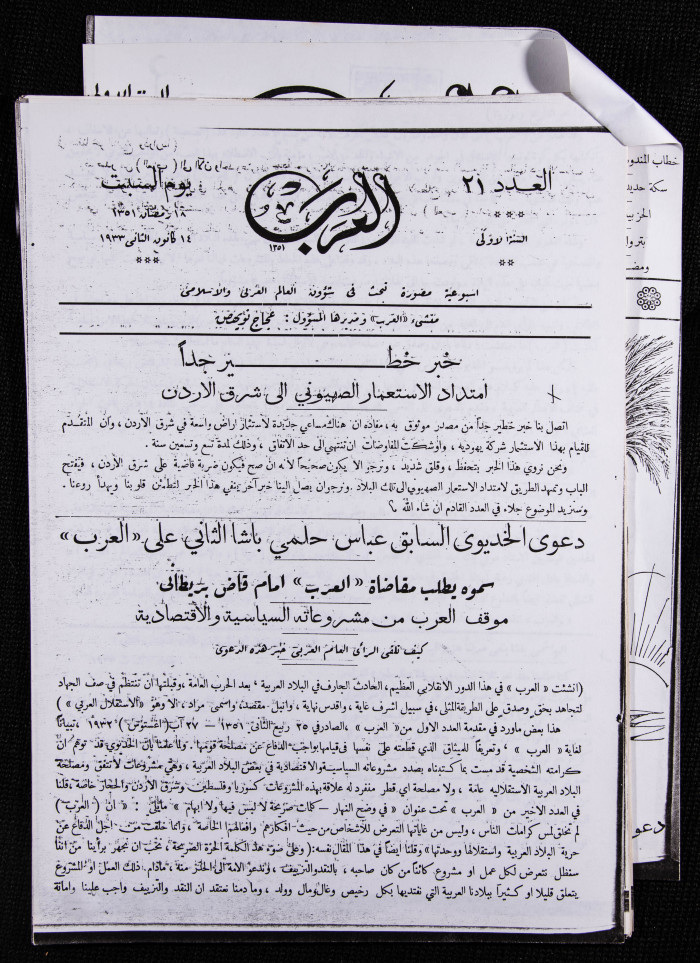 العدد ٢١
العرب
١٣٥١
يوم السبت
السنة الاولى
١٨ رمضان ١٣٥١
١٤ كانون الثانى ١٩٣٣
اسبوعية مصورة تبحث فى شؤون العالم العربى والاسلامى
منشىء «العرب» ومديرها المسؤول : عجاج نويهض
خبر خطير جداً
امتداد الاستعمار الصهيوني الى شرق الاردن
اتصل بنا خبر خطير جداً من مصدر موثوق به ، مفاده ان هناك مساعي جديدة لاستثمار اراض واسعة في شرق الاردن ، وان المتقدم
للقيام بهذا الاستثمار شركة يهودية ، واوشكت المفاوضات ان تنتهي الى حد الاتفاق ، وذلك لمدة تسع وتسعين سنة .
ونحن نروي هذا الخبر بتحفظ ، وقلق شديد ، ونرجو الا يكون صحيحاً لأنه ان صح فيكون ضربة قاضية على شرق الاردن ، فيفتح
الباب ويمهد الطريق لامتداد الاستعمار الصهيوني الى تلك البلاد . ونرجو ان يصل الينا خبر آخر ينفي هذا الخبر لتطمئن قلوبنا ويهدأ روعنا .
وسنزيد الموضوع جلاء في العدد القادم ان شاء الله ؟
دعوى الخديوى السابق عباس حلمي باشا الثاني على «العرب»
سموه يطلب مقاضاة «العرب» امام قاض بريطانى
موقف العرب من مشروعاته السياسية والاقتصادية
كيف تلقى الرأى العام العربى خبر هذه الدعوى
(انشئت «العرب» في هذا الدور الانقلابي العظيم ، الحادث الجارف في البلاد العربية ، بعد الحرب العامة ، وقبلتها ان تنتظم في صف الجهاد
لتجاهد بحق وصدق على الطريقة المثلى ، في سبيل اشرف غاية ، واقدس نهاية ، وانبل مقصد ، واسمى مراد ، الا وهو «الاستقلال العربي»)
هذا بعض ما ورد في مقدمة العدد الاول من «العرب» ، الصادر في ٢٥ ربيع الثانى ١٣٥١ — ٢٧ آب (اغسطوس) ١٩٣٢ ، تبياناً
لغاية «العرب» ، وتعريفاً للميثاق الذي قطعته على نفسها في قيامها بواجب الدفاع عن مصلحة قومها . ولما علمنا بأن الخديوي قد توهم ان
كرامته الشخصية قد مست بما كتبناه بصدد مشروعاته السياسية والاقتصادية في بعض البلاد العربية ، وهي مشروعات لا تتفق ومصلحة
البلاد العربية الاستقلالية عامة ، ولا مصلحة اي قطر منفرد له علاقة بهذه المشروعات كسوريا وفلسطين وشرق الاردن والحجاز خاصة ، قلنا
في العدد الاخير من «العرب» تحت عنوان «في وضح النهار – كلمات صريحة لا لبس فيها ولا ابهام» مايلي : «ان (العرب)
لم تخلق لمس كرامات الناس ، وليس من غاياتها التعرض للأشخاص من حيث افكارهم وافعالهم الخاصة ، وانما خلقت من اجل الدفاع عن
حرية البلاد العربية واستقلالها ووحدتها» وقلنا ايضاً في هذا المقال نفسه : (وعلى ضوء هذه الكلمة الحرة الصريحة ، نحب ان نجهر برأينا من اننا
سنظل نتعرض لكل عمل او مشروع كائناً من كان صاحبه ، بالنقد والتزييف ، وندعو الامة الى الحذر منه ، مادام ذلك العمل او المشروع
يتعلق قليلا او كثيراً ببلادنا العربية التي نفتديها بكل رخيص وغال ومال وولد ، وما دمنا نعتقد ان النقد والتزييف واجب علينا وامانة
خطاب المندو
سكة حديد
ومض
دعو